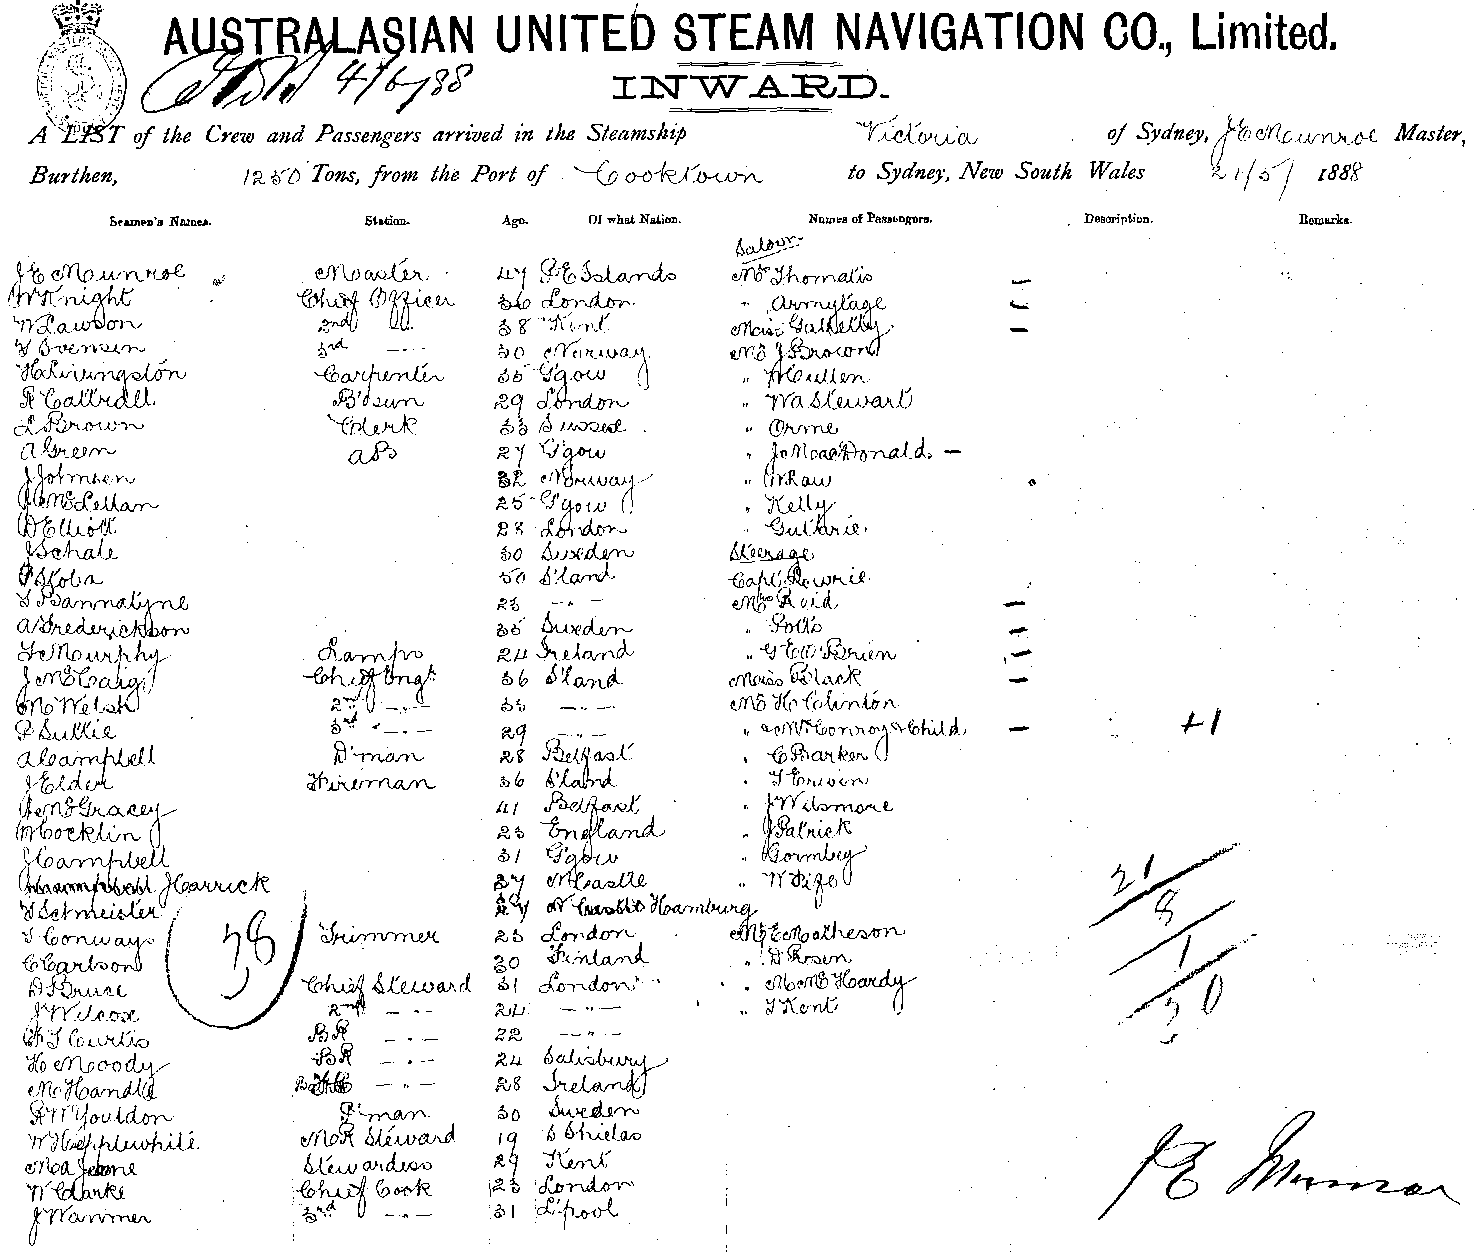 AUSTRALASIAN UNITED STEAM NAVIGATION CO., Limited.
4/6/88
INWARD.
A LIST of the Crew and Passengers arrived in the Steamship Victoria of Sydney, J E Munroe Master,
Burthen, 1250 Tons, from the Port of Cooktown to Sydney, New South Wales 21/5/ 1888
Seamen's Names. Station. Age. Of what Nation. Names of Passengers. Description. Remarks.
Saloon
J E Munroe Master 47 P E Islands Mr Thomatis —
W Knight Chief Officer 36 London " Armytage —
W Lawson 2nd " 38 Kent Miss Gathelly —
T Svensen 3rd — " — 30 Norway Mr J Brown
H Livingston Carpenter 35 G'gow " Cullen
R Cattrall B'osun 29 London " W A Stewart
L Brown Clerk 33 Sussex " Orme
A Green A B 27 G'gow " J MacDonald —
J Johnsen 32 Norway " W Raw
J McLellan 25 G'gow " Kelly
D Elliott 28 London " Guthrie
J Schale 30 Sweden Steerage
P Skoba 50 S'land Capt Lowrie
T Bannatyne 23 — " — Mrs Reid —
A Frederickson 35 Sweden " Potts —
T Murphy Lamps 24 Ireland " G E O'Brien —
J McCaig Chief Engr 36 S'land Miss Black —
M Welsh 2nd — " — 33 — " — Mr H Clinton
P Suttie 3rd — " — 29 — " — " & Mrs Conroy & Child — +1
A Campbell D'man 28 Belfast " C Barker
J Elder Fireman 36 S'land " T Erwin
J McGracey 41 Belfast " J Wilsmore
W Cocklin 23 England " J Patrick
J Campbell 31 G'gow " Gormley
J Carrick 37 N Castle " W Fife 21
T Setmeister 27 Hamburg 8
T Conway Trimmer 23 London Mr E Matheson 1
C Carlson 38 30 Finland " D Rosen
D Bruce Chief Steward 31 London " M McHardy 30
J Wilcox 2nd — " — 24 — " — " T Kent
T Curtis B R — " — 22 — " —
H Moody B R — " — 24 Salisbury
M Handle — " — 28 Ireland
R W Youldon P'man 30 Sweden
W Hepplewhite M R Steward 19 S Shields
M A Jeane Stewardess 29 Kent
W Clarke Chief Cook 23 London
J Wammer 3rd — " — 31 L'pool
J E Munroe